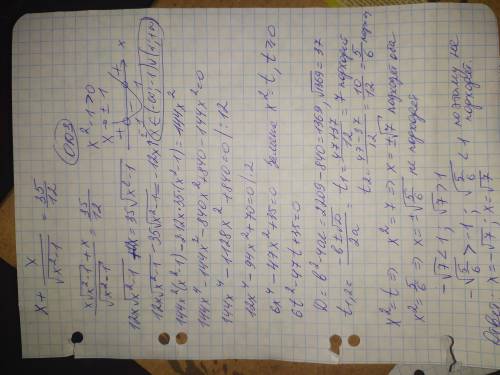 x + x/√(x²-1) = 35/12
ОДЗ
x²-1>0
x → ± 1
+ - +
-1 1 x
x ∈ (-∞; -1) ∪ (1; +∞)
(x√(x²-1) + x)/√(x²-1) = 35/12
12x√(x²-1) = 35√(x²-1)
12x√(x²-1) - 35√(x²-1) = -12x
144x²(x²-1) - 2·12x·35(x²-1) = 144x²
144x⁴ - 144x² - 840x² + 840 - 144x² = 0
144x⁴ - 1128x² + 840 = 0 | : 12
12x⁴ - 94x² + 70 = 0 | : 2
6x⁴ - 47x² + 35 = 0 Замена x² = t, t ≥ 0
6t² - 47t + 35 = 0
D = b² - 4ac = 2209 - 840 = 1369, √1369 = 37
t₁,₂ = (-b ± √D)/2a
t₁ = (47+37)/12 = 7 подходит
t₂ = (47-37)/12 = 10/12 = 5/6 подх.
x² = t ⇒ x² = 7 ⇒ x = ±√7 подходят оба
x² = 5/6 ⇒ x = ±√(5/6) не подходят
-√7 < 1 ; √7 > 1
-√(5/6) > -1 ; √(5/6) < 1 поэтому не подходят
Ответ: x = -√7 ; x = √7